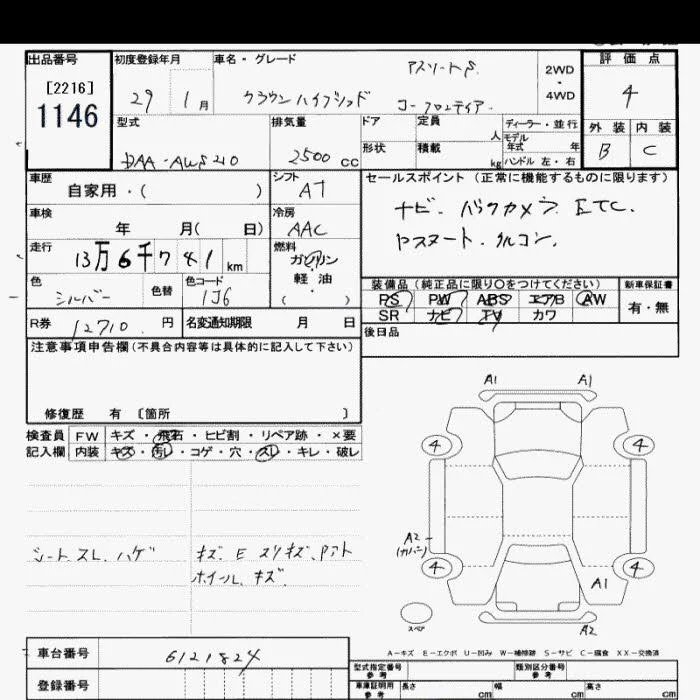 出品番号 初度登録年月 車名・グレード 評価点
[2216]
1146
29 1月 クラウンハイブリッド アスリートS
2WD ・ 4WD
4
型式 排気量 ドア 定員 人 ディーラー・並行
形状 積載 kg モデル年式 年
ハンドル 左・右
外装 内装
B C
DAA-AWS210 2500 cc
車歴 シフト セールスポイント (正常に機能するものに限ります)
自家用・( ) AT
ナビ. バックカメラ ETC.
車検 冷房
年 月( 日) AAC
Pスタート. クルコン.
走行 燃料
13万6千741 km ガソリン
・
軽油
( )
色 色替 色コード
シルバー 1J6
装備品 (純正品に限り〇をつけてください) 新車保証書
PS PW ABS エアB AW 有・無
SR ナビ TV カワ
R券 12710 円 名変通知期限 月 日
後日品
注意事項申告欄 (不具合内容等は具体的に記入して下さい)
修復歴 有 〔箇所 〕
検査員 FW キズ・飛石・ヒビ割・リペア跡・×要
記入欄 内装 キズ・汚レ・コゲ・穴・スレ・キレ・破レ
シートスレ. ハゲ
キズ. E スリキズ.
ホイール. キズ.
A1 A1
4 4
A2
(カバー)
4 4
A1
スペア
A2
A-キズ E-エクボ U-凹み W-補修跡 S-サビ C-腐食 XX-交換済
車台番号 6121824
登録番号
型式指定番号 参考 類別区分番号 参考
車庫証明用 参考 長さ cm 幅 cm 高さ cm